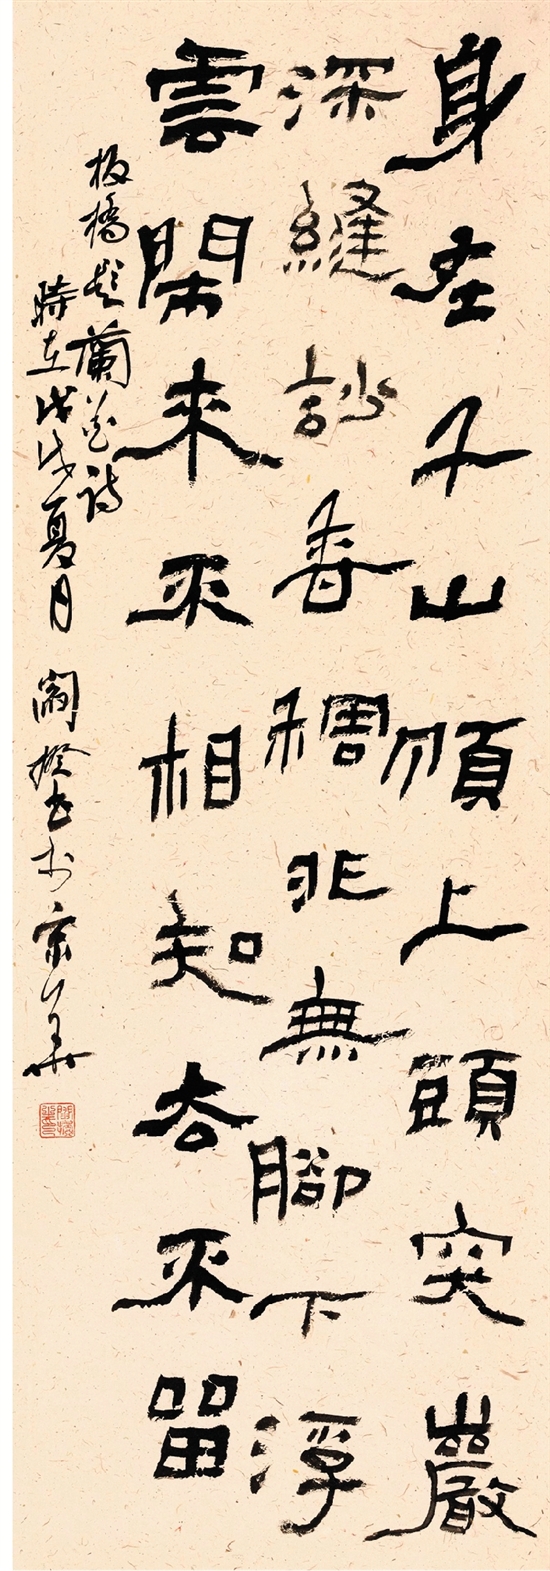 身在千山頂上頭突巖
深縫訬香稠非無腳下浮
雲閙來不相知去不畱
板橋題蘭花詩
時在戊戌夏月 書於京華